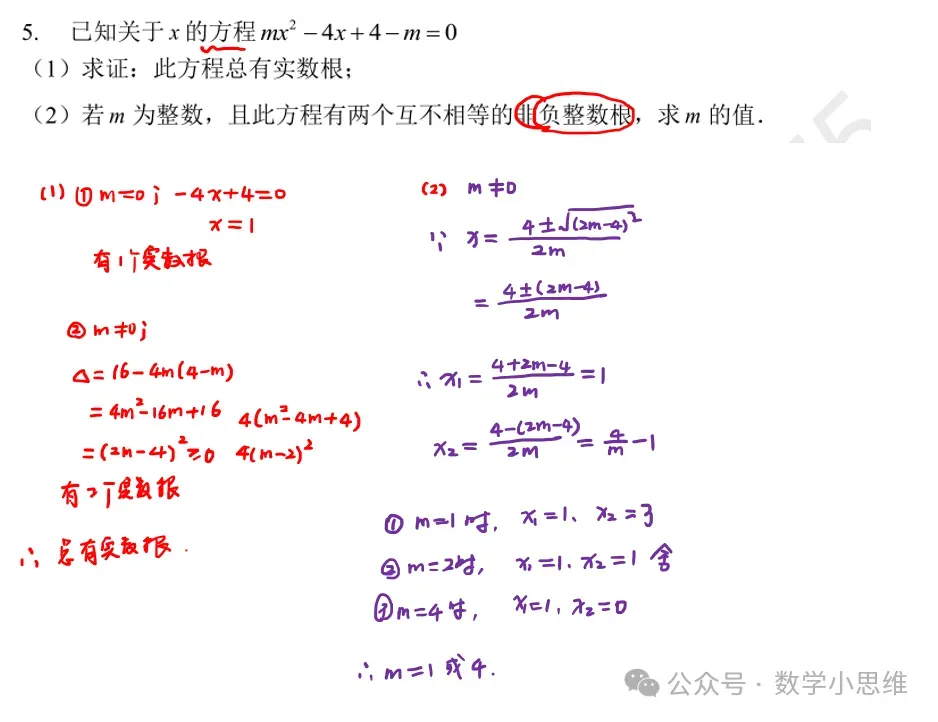 5. 已知关于 x 的方程 mx² − 4x + 4 − m = 0
（1）求证：此方程总有实数根；
（2）若 m 为整数，且此方程有两个互不相等的非负整数根，求 m 的值．
(1) ① m=0; -4x+4=0
x=1
有1个实数根
② m≠0;
△=16-4m(4-m)
=4m²-16m+16 4(m²-4m+4)
=(2m-4)²≥0 4(m-2)²
有2个实数根
∴ 总有实数根.
(2) m≠0
∵ x = (4±√(2m-4)²)/(2m)
= (4±(2m-4))/(2m)
∴ x₁ = (4+2m-4)/(2m) = 1
x₂ = (4-(2m-4))/(2m) = 4/m - 1
① m=1时, x₁=1、x₂=3
② m=2时, x₁=1、x₂=1 舍
③ m=4时, x₁=1、x₂=0
∴ m=1或4.
公众号·数学小思维